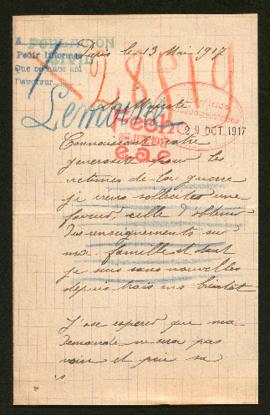 POBLACION
CIVIL
Pedir Informes
Paris le 13 Mai 1917
Lemoine
29 OCT 1917
Sa Majesté
Connaissant votre
générosité pour les
victimes de la guerre
je viens solliciter une
faveur, celle d'obtenir
des renseignements sur
ma famille dont
je suis sans nouvelles
depuis trois ans bientôt
J'ose espérer que ma
demande ne sera pas
vaine et prie sa